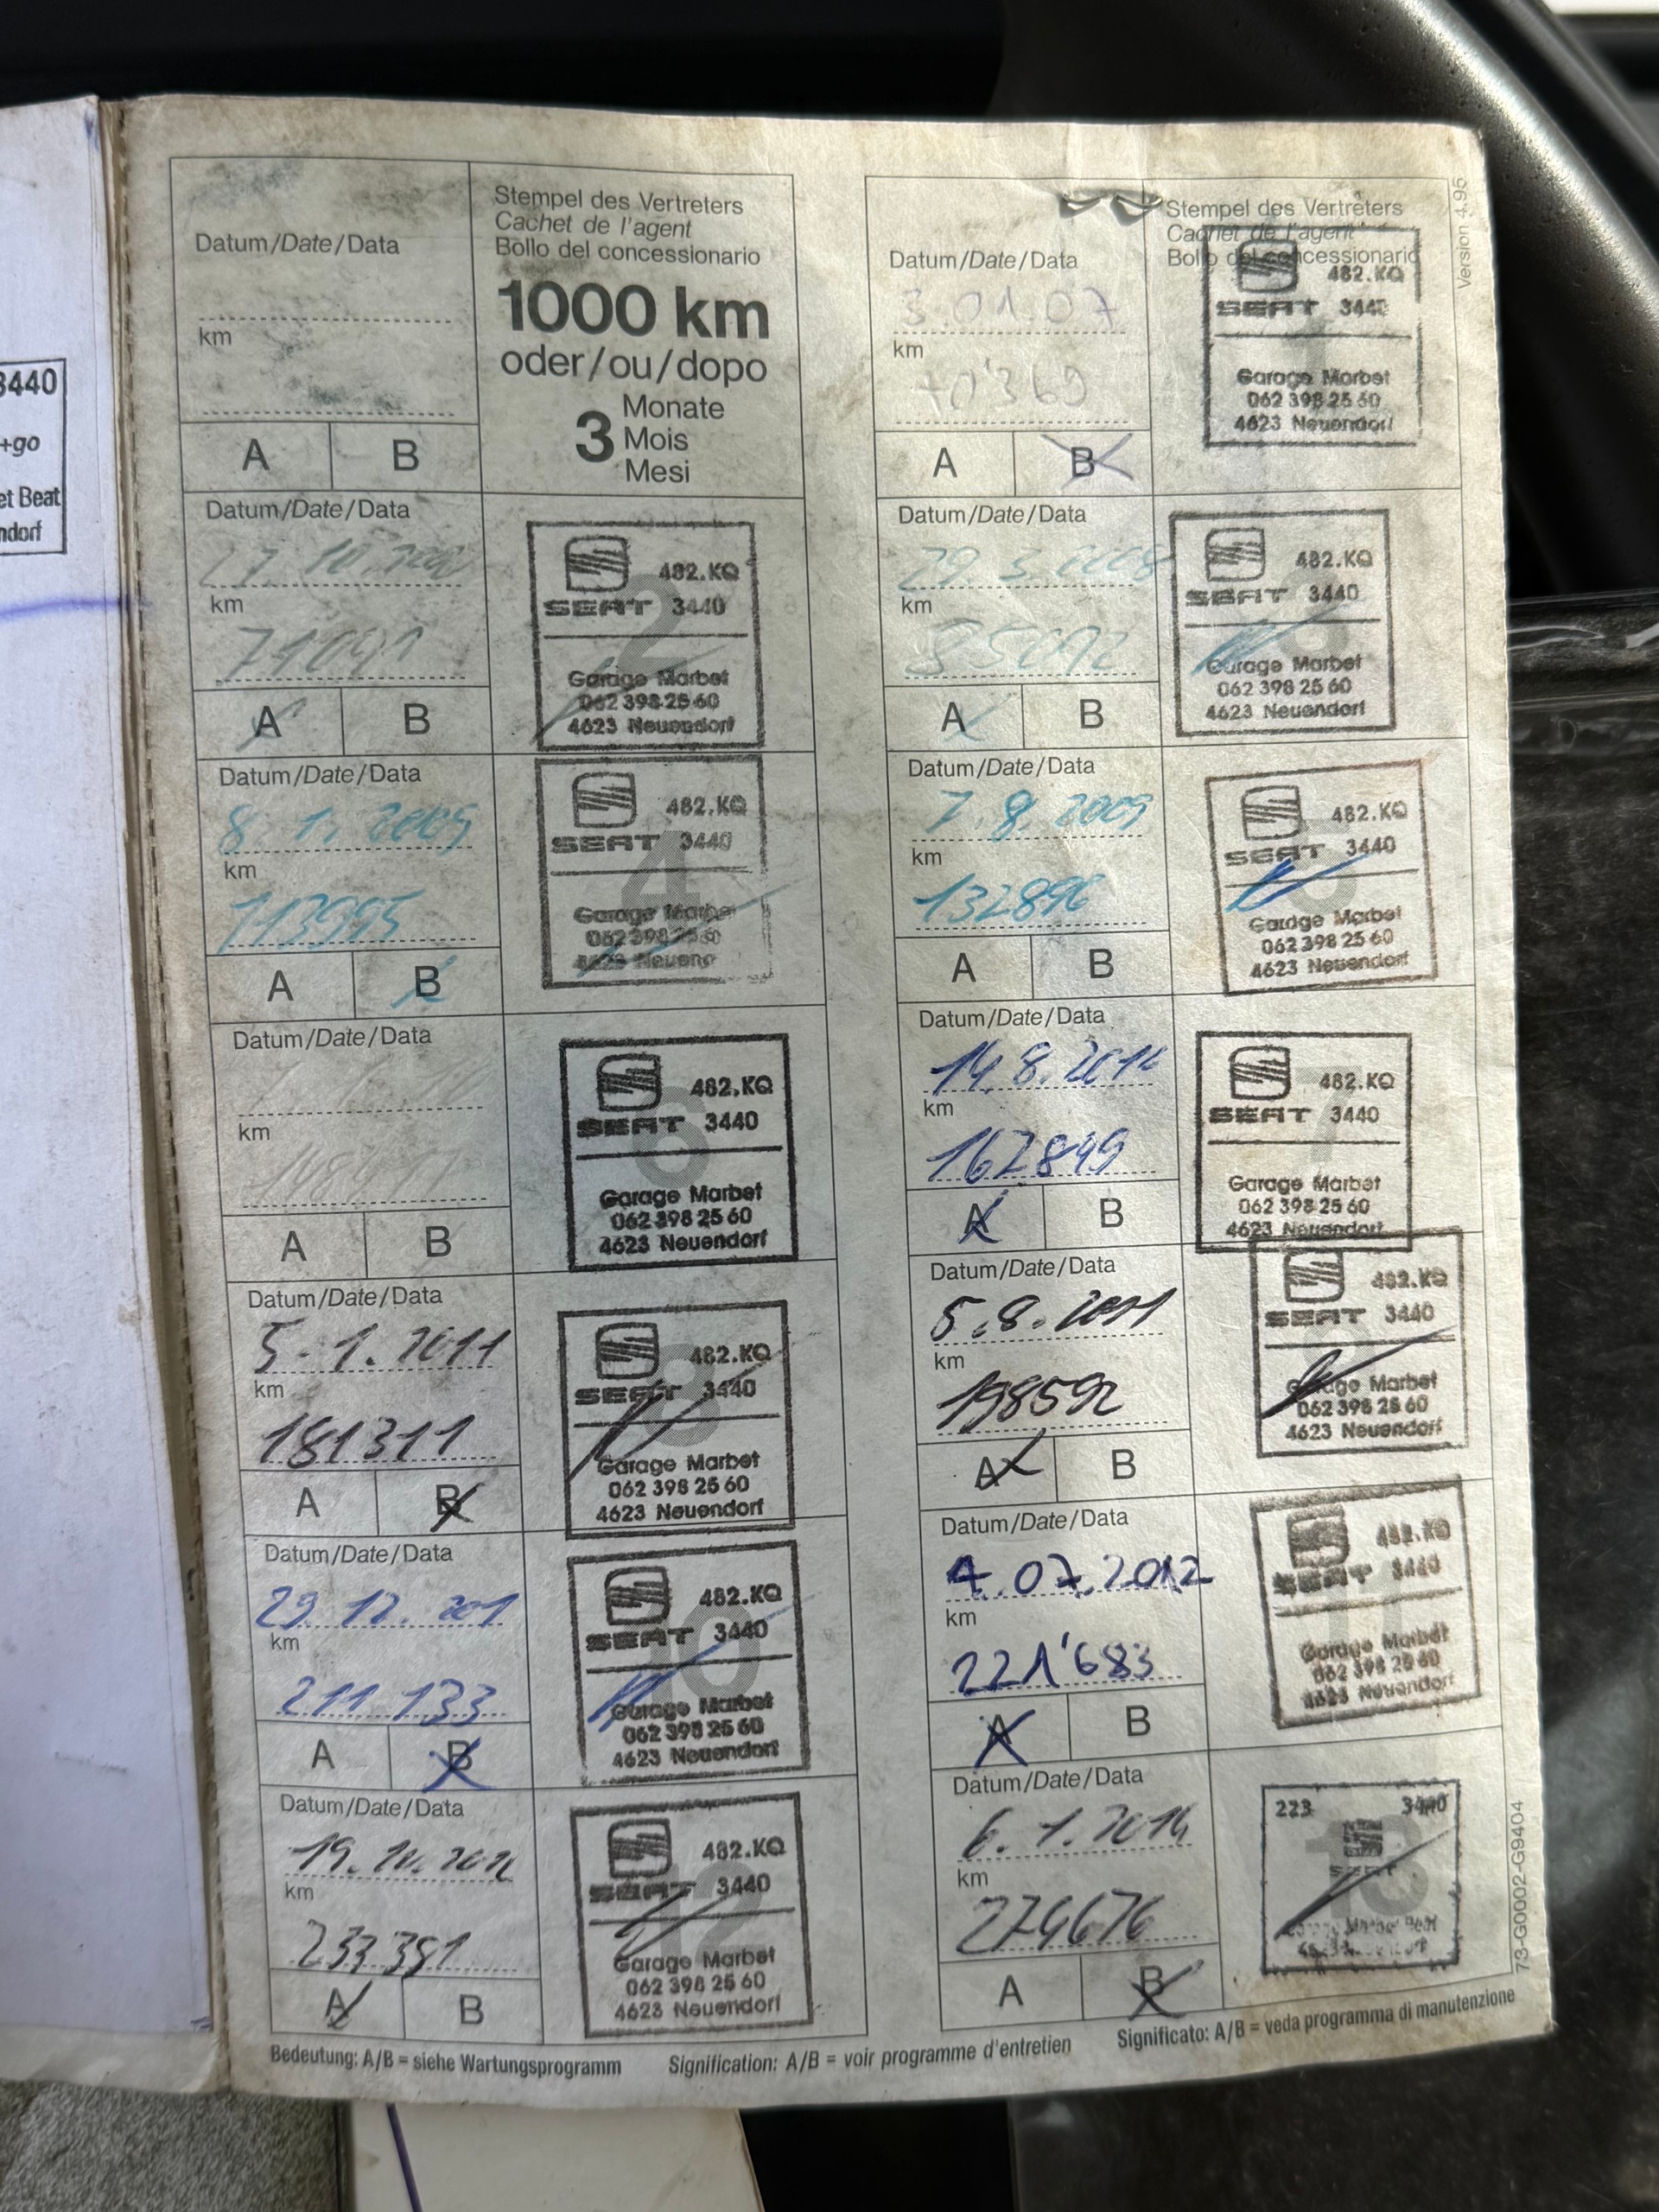 3440
+go
et Beat
ndorf
Datum/Date/Data
km
A B
Stempel des Vertreters
Cachet de l'agent
Bollo del concessionario
1000 km
oder/ou/dopo
3 Monate
Mois
Mesi
Datum/Date/Data
3.01.07
km
A B
Stempel des Vertreters
Cachet de l'agent
Bollo del concessionario
1
482.KQ
SEAT 3440
Garage Marbet
062 398 25 60
4623 Neuendorf
Version 4.95
Datum/Date/Data
km
71091
A B
2
482.KQ
SEAT 3440
Garage Marbet
062 398 25 60
4623 Neuendorf
Datum/Date/Data
29.3.2008
km
A B
3
482.KQ
SEAT 3440
Garage Marbet
062 398 25 60
4623 Neuendorf
Datum/Date/Data
8.1.2009
km
113995
A B
4
482.KQ
SEAT 3440
Garage Marbe
062 398 25 6
4623 Neuend
Datum/Date/Data
7.8.2009
km
132896
A B
5
482.KQ
SEAT 3440
Garage Marbet
062 398 25 60
4623 Neuendorf
Datum/Date/Data
km
A B
6
482.KQ
SEAT 3440
Garage Marbet
062 398 25 60
4623 Neuendorf
Datum/Date/Data
14.8.2010
km
167849
A B
7
482.KQ
SEAT 3440
Garage Marbet
062 398 25 60
4623 Neuendorf
Datum/Date/Data
5.1.2011
km
181311
A B
8
482.KQ
SEAT 3440
Garage Marbet
062 398 25 60
4623 Neuendorf
Datum/Date/Data
5.8.2011
km
198592
A B
482.KQ
SEAT 3440
Garage Marbet
062 398 25 60
4623 Neuendorf
Datum/Date/Data
29.12.201
km
211 133
A B
10
482.KQ
SEAT 3440
Garage Marbet
062 398 25 60
4623 Neuendorf
Datum/Date/Data
4.07.2012
km
221'683
A B
11
482.KQ
SEAT 3440
Garage Marbet
062 398 25 60
4623 Neuendorf
Datum/Date/Data
km
233391
A B
12
482.KQ
SEAT 3440
Garage Marbet
062 398 25 60
4623 Neuendorf
Datum/Date/Data
6.1.2014
km
274676
A B
13
223 3440
SEAT
Marbet Beat
73-G0002-G9404
Bedeutung: A/B = siehe Wartungsprogramm Signification: A/B = voir programme d'entretien Significato: A/B = veda programma di manutenzione